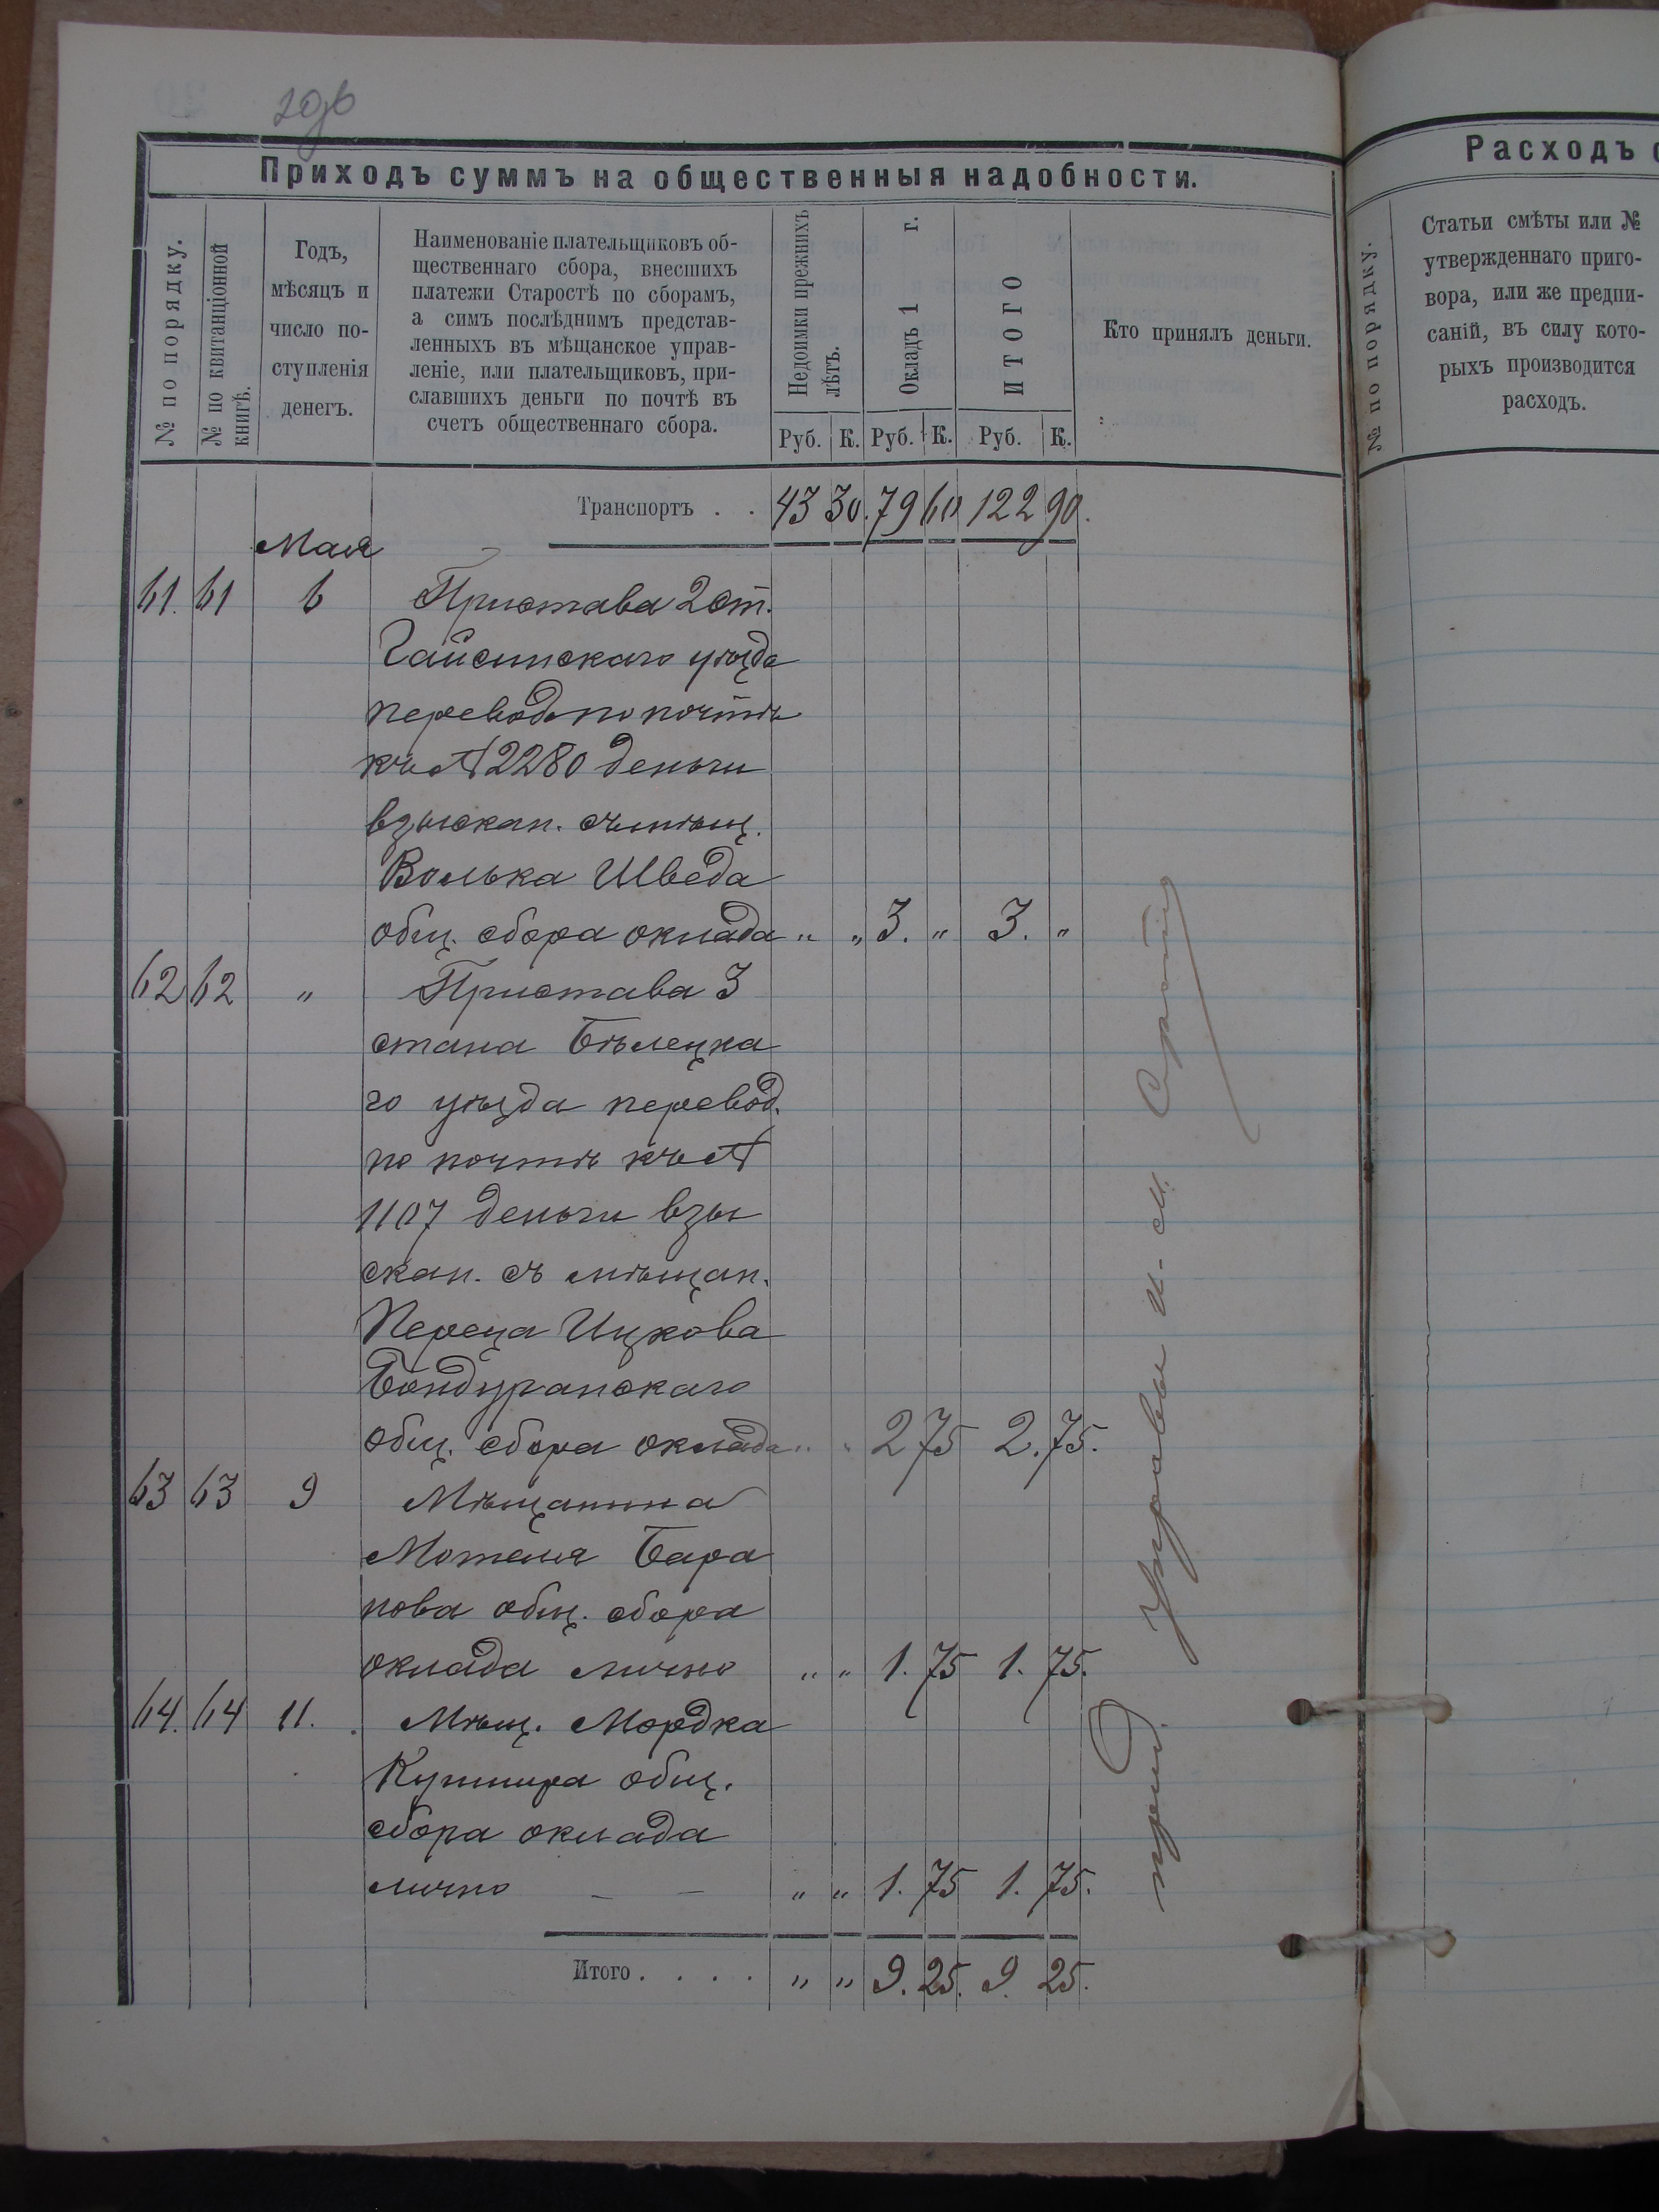 Приходъ суммъ на общественныя надобности.
№ по порядку.
№ по квитанціонной книгѣ.
Годъ,
мѣсяцъ и
число по-
ступленія
денегъ.
Наименованіе плательщиковъ об-
щественнаго сбора, внесшихъ
платежи Старостѣ по сборамъ,
а симъ послѣднимъ представ-
ленныхъ въ мѣщанское управ-
леніе, или плательщиковъ, при-
славшихъ деньги по почтѣ въ
счетъ общественнаго сбора.
Недоимки прежнихъ лѣтъ.
Окладъ 1 г.
ИТОГО
Руб. К. Руб. К. Руб. К.
Кто принялъ деньги.
Транспортъ . . 43 30. 79 60 122 90.
Мая
61. 61 6 Пристава 2 ст.
Гайсинскаго уѣзда
перевод по почтѣ
къ № 2280 деньги
взыскан. съ мѣщ.
Волька Шведа
общ. сбора оклада „ „ 3. „ 3. „
62 62 „ Пристава 3
стана Бѣлецка
го уѣзда перевод.
по почтѣ къ №
1107 деньги взы
скан. съ мѣщан.
Переца Ицкова
Бондуранскаго
общ. сбора оклада „ „ 2 75 2. 75.
63 63 9 Мѣщанина
Мотеля Бара
нова общ. сбора
оклада лично „ „ 1. 75 1. 75.
64. 64 11. Мѣщ. Мордка
Кушнира общ.
сбора оклада
лично — — „ „ 1. 75 1. 75.
Итого . . . . „ „ 9. 25. 9. 25.
Управы
Расходъ
№ по порядку.
Статьи смѣты или №
утвержденнаго приго-
вора, или же предпи-
саній, въ силу кото-
рыхъ производится
расходъ.